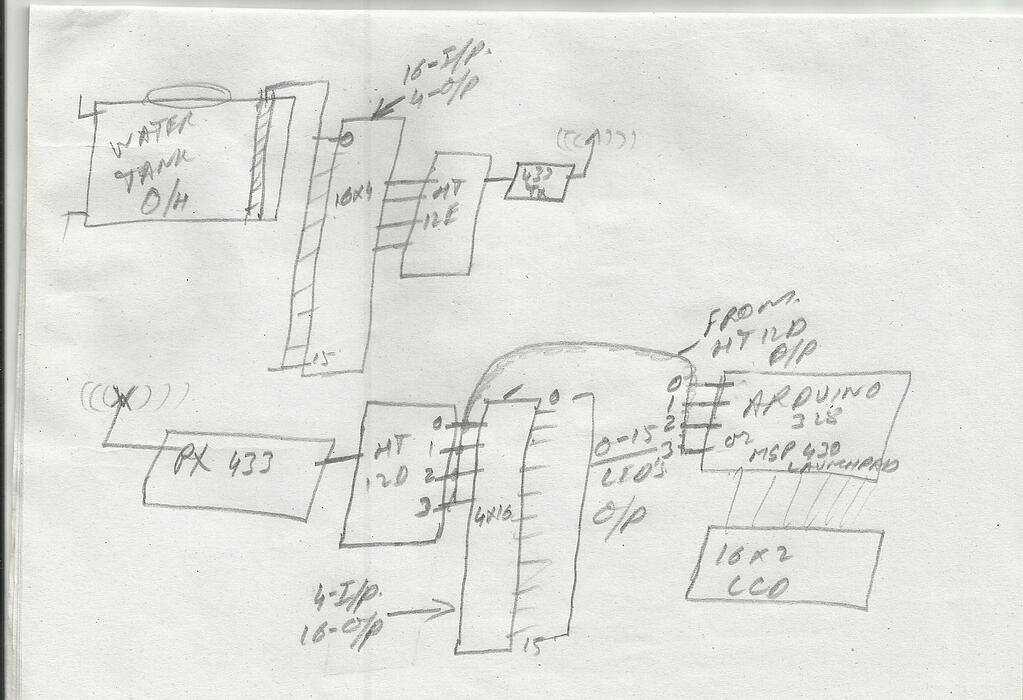 16-I/P.
4-O/P
WATER
TANK
O/H
0
16X4
HT
12E
433
TX
15
FROM.
HT 12D
O/P
0
1
2
3
ARDUINO
328
or
MSP 430
LAUNCHPAD
RX 433
HT
12D
0
1
2
3
0
4X16
15
0-15
LED'S
O/P
16X2
LCD
4-I/P.
16-O/P